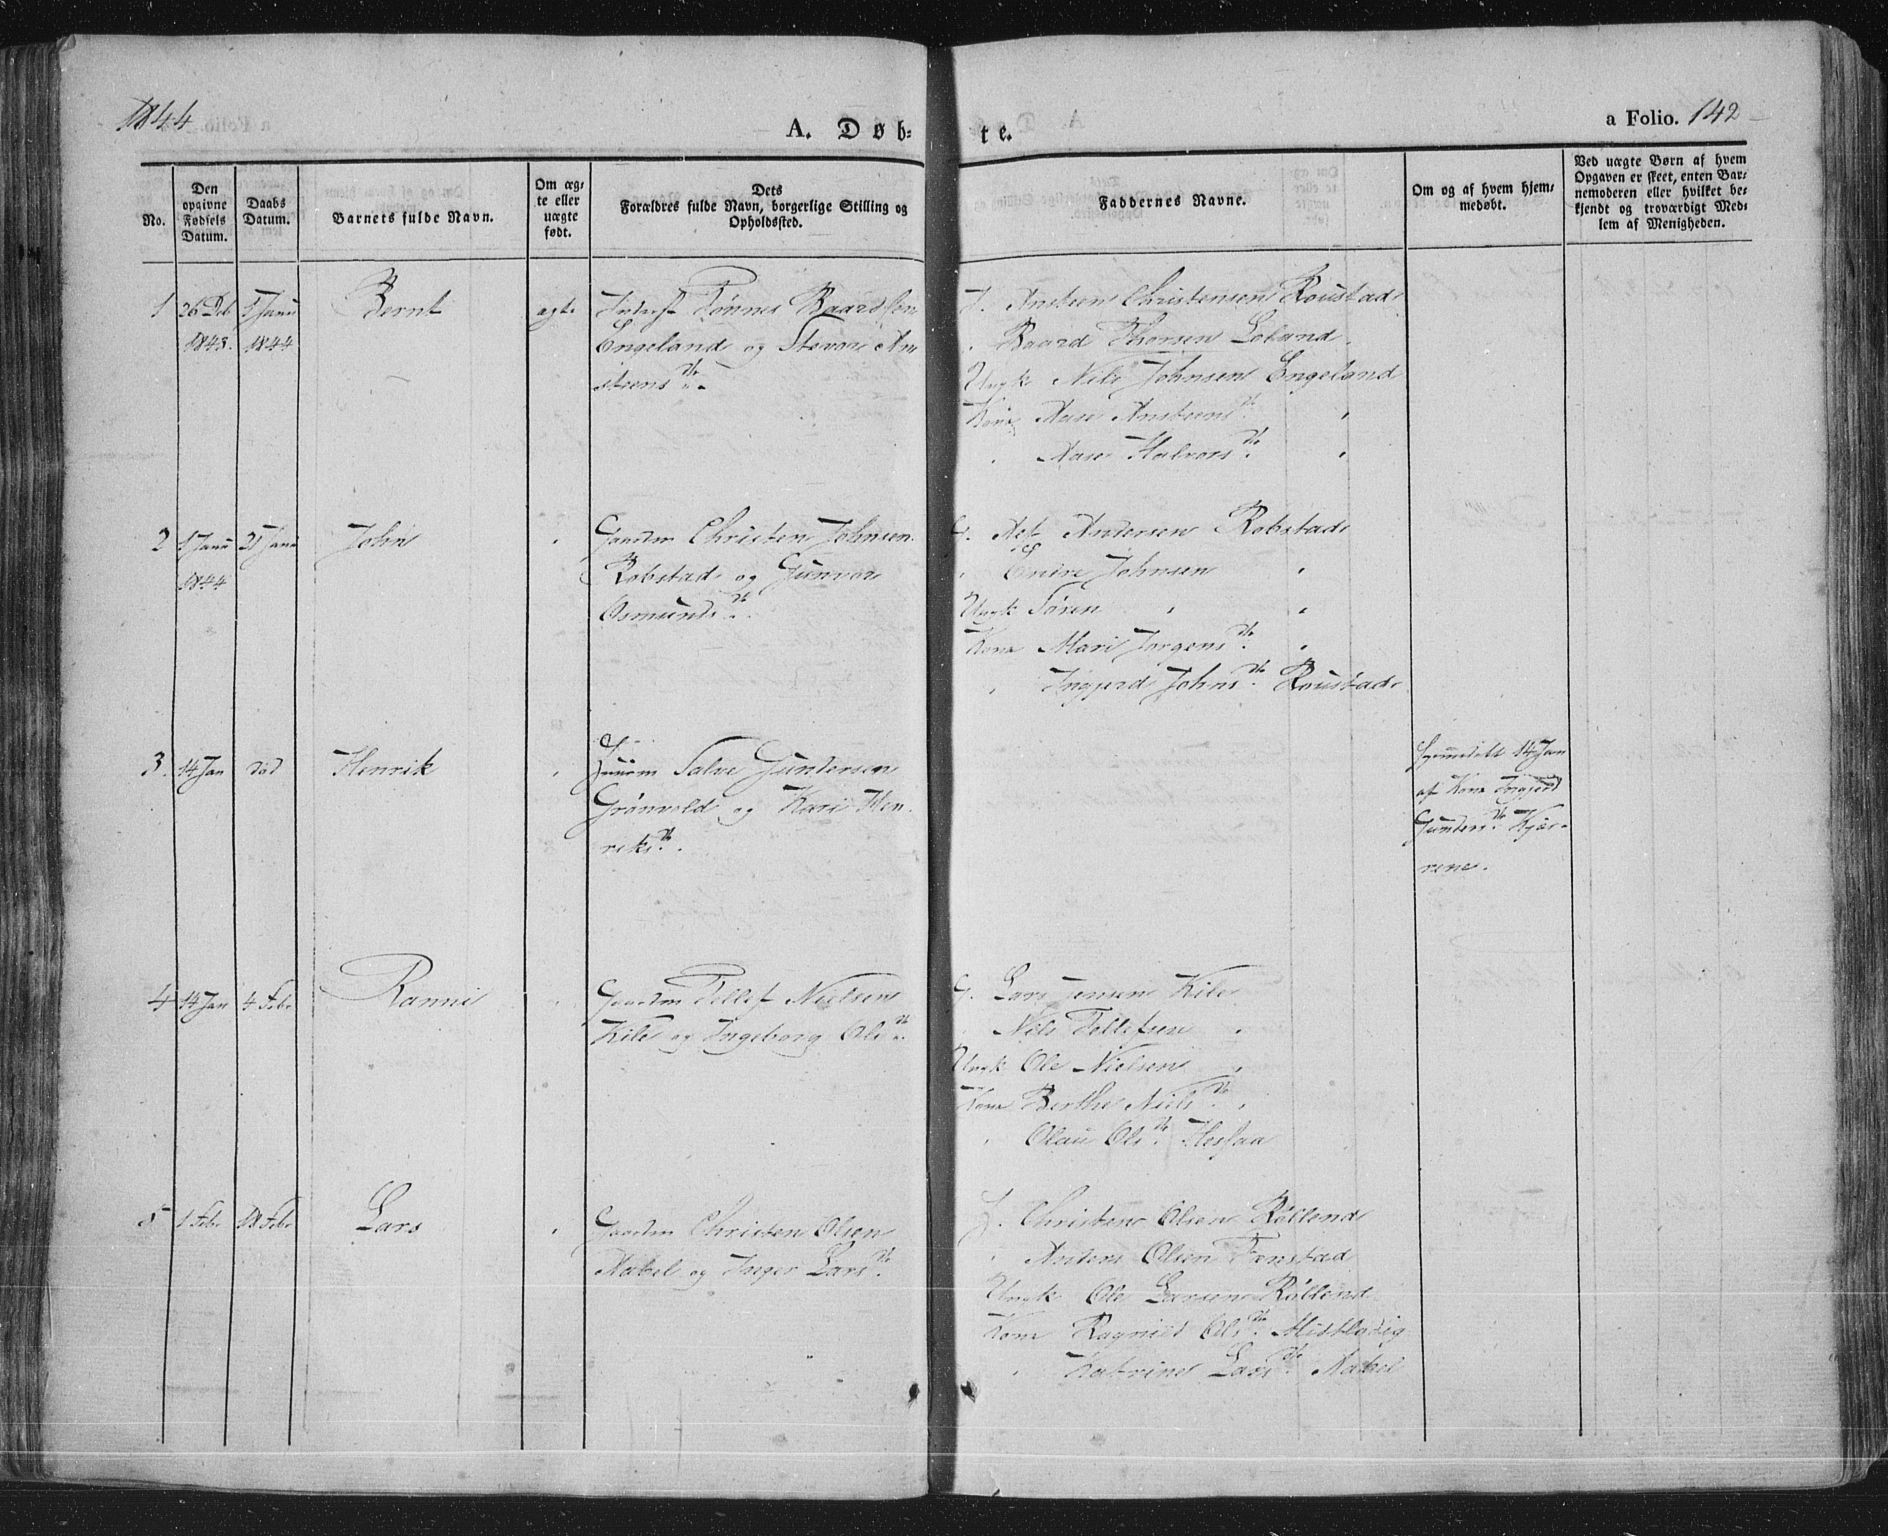 1844
A. Døb-
te.
a Folio. 142
No.
Den opgivne Fødsels Datum.
Daabs Datum.
Barnets fulde Navn.
Om æg-
te eller
uægte
født.
Dets
Forældres fulde Navn, borgerlige Stilling og
Opholdssted.
Faddernes Navne.
Om og af hvem hjem-
medøbt.
Ved uægte Børn af hvem
Opgaven er skeet, enten Bar-
nemoderen eller hvilket be-
kjendt og troværdigt Med-
lem af Menigheden.
1 26 Dcb 1 Janu Bernt ægte Tønnes Baardsen
1843. 1844 Engeland og An
steens Dr.
Ansteen Christensen Roustad
Baard Thorsen Loland
Ungk Nils Johnsen Engeland
Kone Aase Ansteens Dr "
" Aase Halvors Dr "
2 1 Janu 21 Janu John " Gaardm Christen Johnsen
1844 Robstad og Gunvor
Osmunds Dr.
G. Andersen Robstad
" Johnsen "
Ungk Søren " "
Kone Mari Jørgens Dr "
" Ingjerd Johns Dr Roustad
3. 14 Jan død Henrik " Huusm Salve Gundersen
Grønvold og Kari Hen
riks Dr.
14 Jan
af Kone Ingjerd
Gunders Dr Kjær-
rene.
4 14 Jan 4 Febr Ranni " Gaardm Tellef Nielsen
Kile og Ingeborg Ols Dr.
G. Lars Jensen Kile
" Nils Tellefsen "
Ungk Ole Nielsen "
Kone Berthe Niels Dr "
" Olau Ols Dr
5 1 Febr 18 Febr Lars " Gaardm Christen Olsen
Mabel og Inger Lars Dr.
G. Christen Olsen Røllend
" Anders Olsen
Ungk Ole Larsen Røllend
Kone Ragnild Ols Dr
" Katrine Lars Dr Mabel